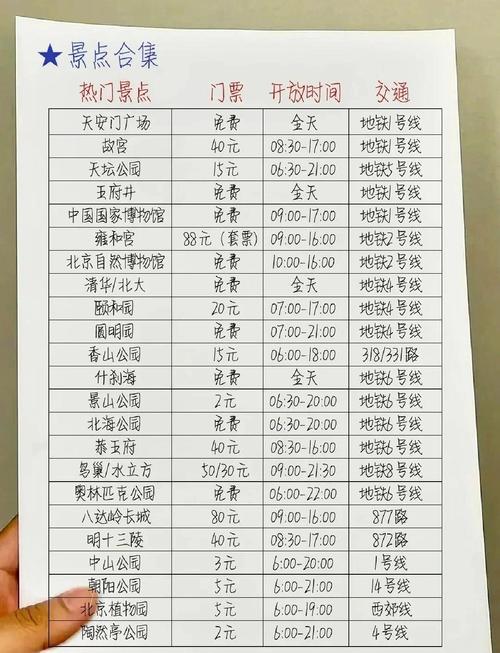 ★景点合集
热门景点 门票 开放时间 交通
天安门广场 免费 全天 地铁1号线
故宫 40元 08:30-17:00 地铁1号线
天坛公园 15元 06:30-21:00 地铁5号线
王府井 免费 全天 地铁1号线
中国国家博物馆 免费 09:00-17:00 地铁1号线
雍和宫 88元（套票） 09:00-16:00 地铁2号线
北京自然博物馆 免费 10:00-16:00 地铁2号线
清华/北大 免费 全天 地铁4号线
颐和园 20元 07:00-17:00 地铁4号线
圆明园 免费 07:00-21:00 地铁4号线
香山公园 15元 06:00-18:00 318/331路
什刹海 免费 全天 地铁6号线
景山公园 2元 06:30-20:00 地铁6号线
北海公园 免费 06:30-20:00 地铁6号线
恭王府 40元 08:30-16:00 地铁6号线
鸟巢/水立方 50/30元 09:00-21:30 地铁8号线
奥林匹克公园 免费 06:00-22:00 地铁6号线
八达岭长城 80元 09:00-16:00 877路
明十三陵 40元 08:30-17:00 872路
中山公园 3元 6:00-20:00 1号线
朝阳公园 5元 6:00-21:00 14号线
北京植物园 5元 6:00-19:00 西郊线
陶然亭公园 2元 6:00-21:00 4号线